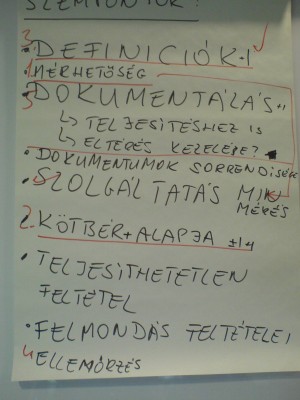 SZEMPONTOK:
3. • DEFINICIÓK!
1. • MÉRHETŐSÉG
3 DOKUMENTÁLÁS
↳ TELJESÍTÉSHEZ IS
↳ ELTÉRÉS KEZELÉSRE?
• DOKUMENTUMOK SORRENDISÉGE
• SZOLGÁLTATÁS MIN
MÉRÉS
2. KÖTBÉR + ALAPJA ±!4
• TELJESÍTHETETLEN
FELTÉTEL
• FELMONDÁS FELTÉTELEI
4 ELLENŐRZÉS